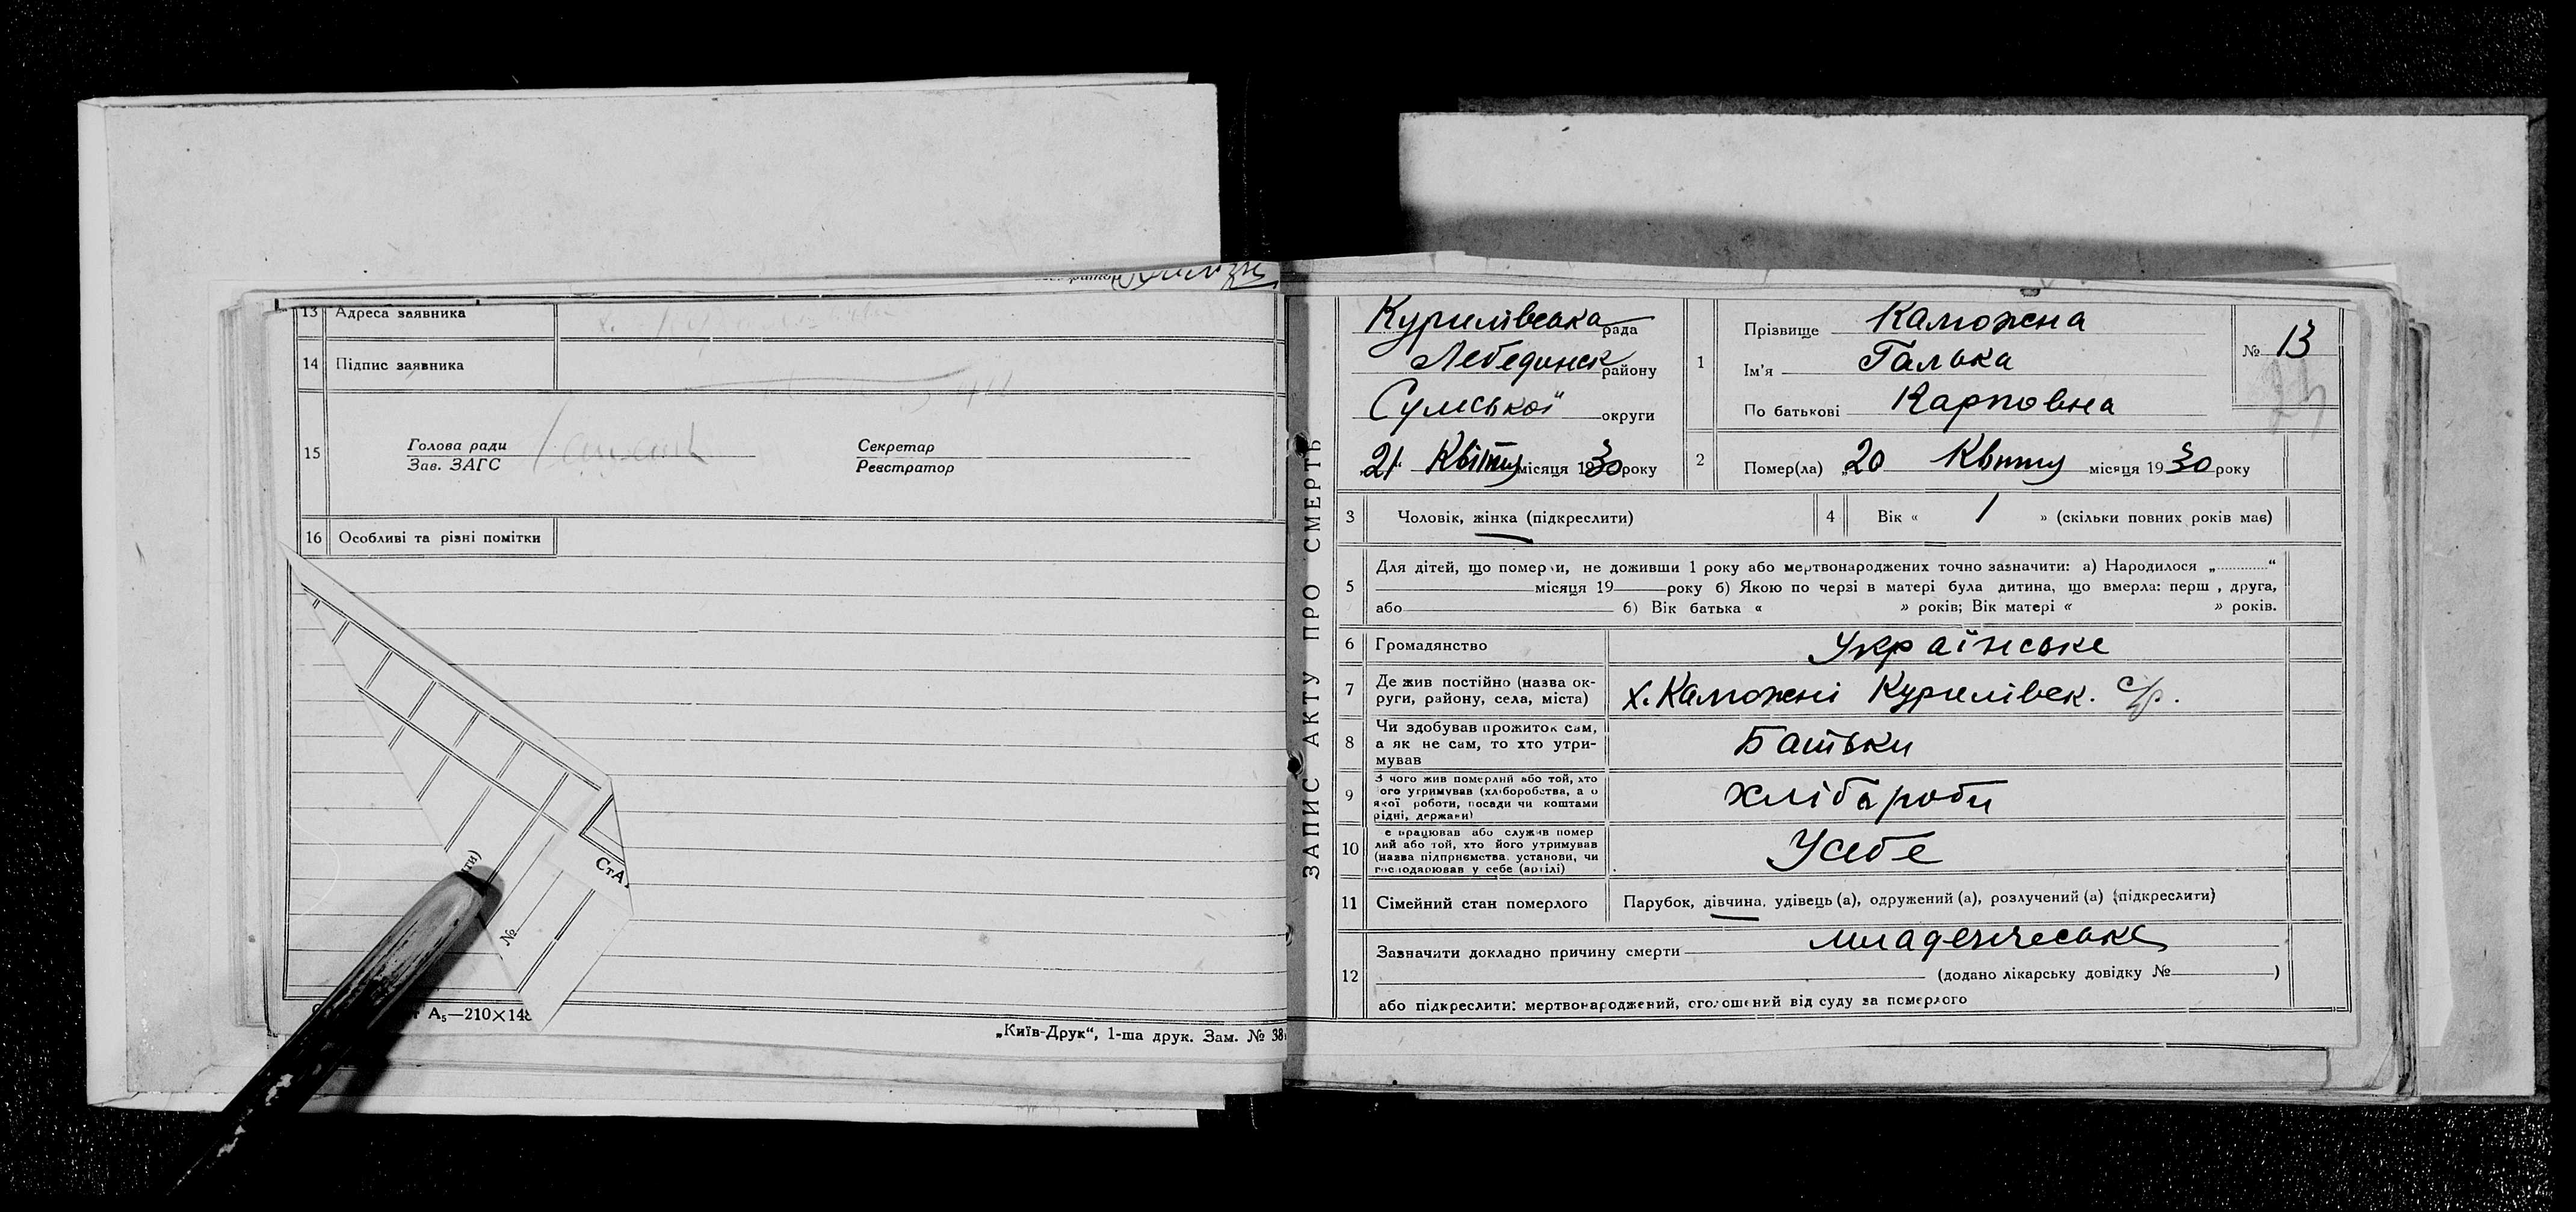 13 Адреса заявника
14 Підпис заявника
15 Голова ради
Зав. ЗАГС
Секретар
Реєстратор
16 Особливі та різні помітки
№
А₅—210×148
„Київ-Друк“, 1-ша друк. Зам. № 38
ЗАПИС АКТУ ПРО СМЕРТЬ
Курилівська рада
Лебединск району
Сумської округи
„21“ Квітня місяця 1930 року
1 Прізвище Каможна
Ім'я Галька
По батькові Карповна
№ 13
2 Помер(ла) „20 Квітня місяця 1930 року
3 Чоловік, жінка (підкреслити)
4 Вік « 1 » (скільки повних років має)
5 Для дітей, що померли, не доживши 1 року або мертвонароджених точно зазначити: а) Народилося „ “
місяця 19 року б) Якою по черзі в матері була дитина, що вмерла: перш , друга,
або б) Вік батька « » років; Вік матері « » років.
6 Громадянство Українське
7 Де жив постійно (назва ок-
руги, району, села, міста) х. Каможні Курилівск. с/р.
8 Чи здобував прожиток сам,
а як не сам, то хто утри-
мував Батьки
9 З чого жив померлий або той, хто
ого утримував (хліборобства, а о
якої роботи, посади чи коштами
рідні, держави) хлібароби
10 е працював або служив помер
лий або той, хто його утримував
(назва підприємства, установи, чи
господарював у себе (артілі) Усебе
11 Сімейний стан померлого Парубок, дівчина, удівець (а), одружений (а), розлучений (а) (підкреслити)
12 Зазначити докладно причину смерти младенческе
(додано лікарську довідку № )
або підкреслити: мертвонароджений, оголошений від суду за померлого